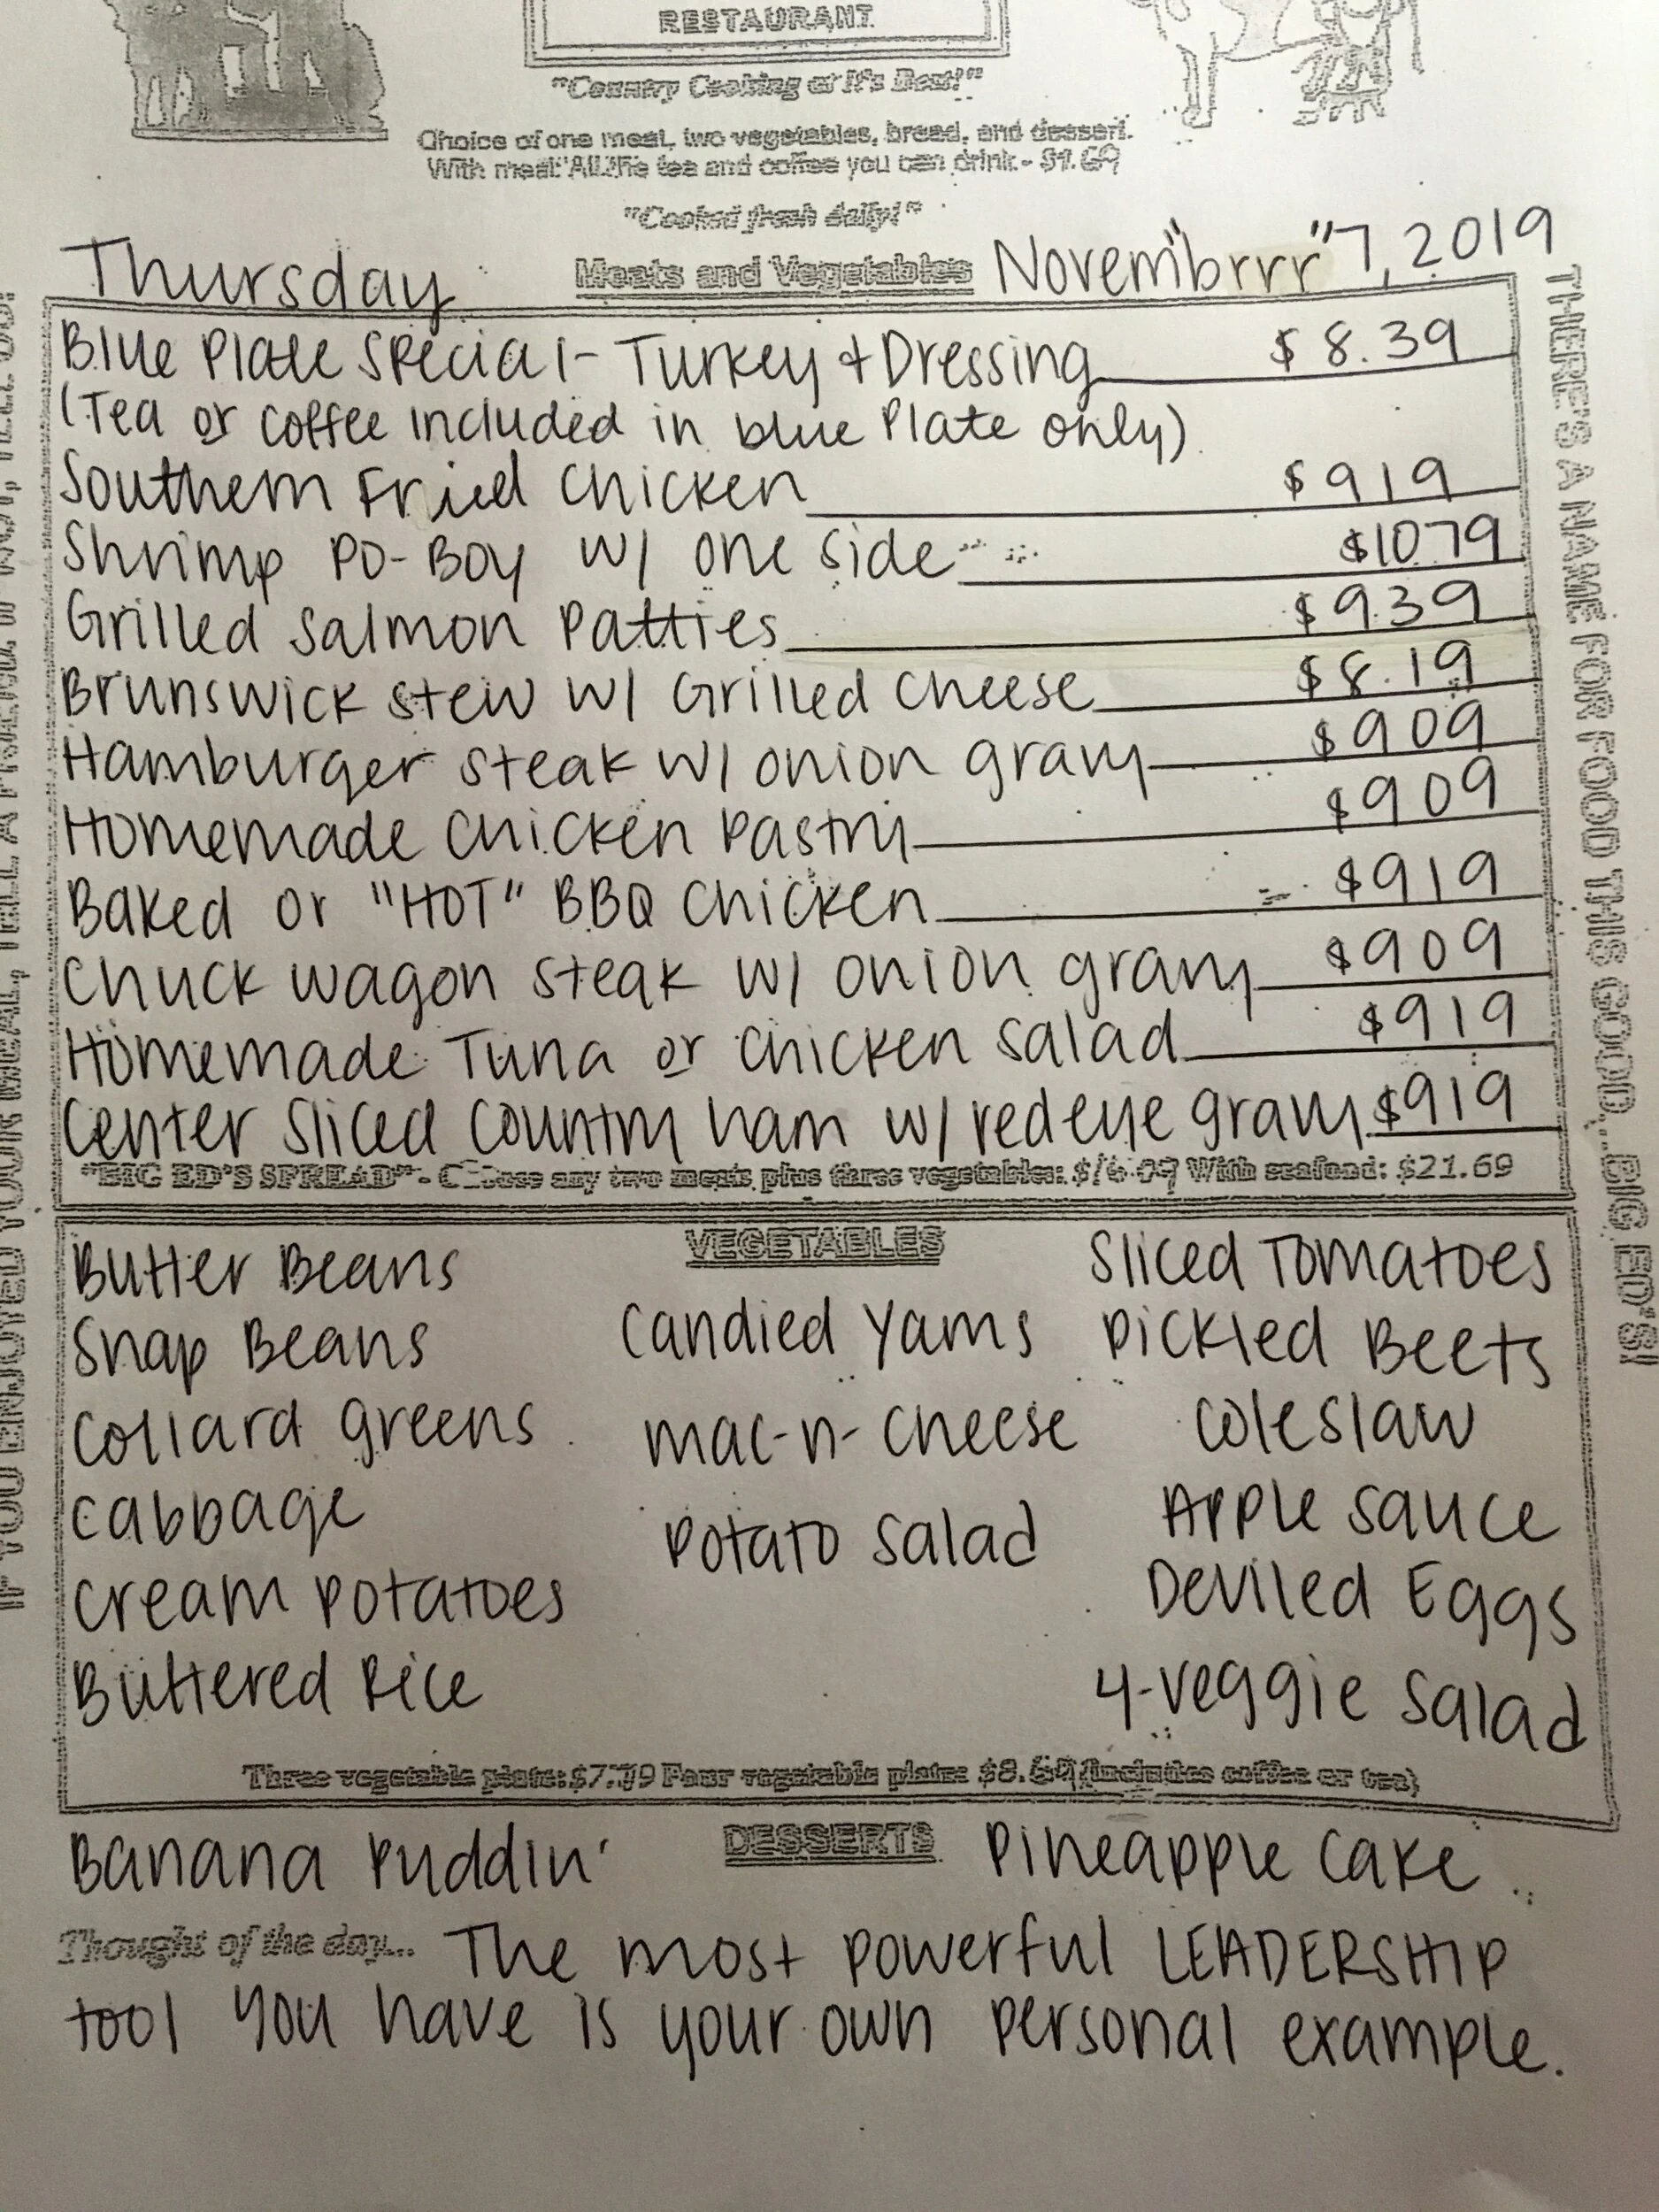 RESTAURANT
"Country Cooking at It's Best!"
Choice of one meat, two vegetables, bread, and dessert.
With meal: All the tea and coffee you can drink - $1.69
"Cooked fresh daily!"
Thursday Meats and Vegetables Novem"brrr" 7, 2019
Blue Plate Special - Turkey & Dressing $8.39
(Tea or coffee included in blue Plate only)
Southern Fried Chicken $919
Shrimp PO-BOY w/ one side $10.79
Grilled Salmon Patties $9.39
Brunswick stew w/ Grilled cheese $8.19
Hamburger steak w/ onion gravy $909
Homemade Chicken Pastry $909
Baked or "HOT" BBQ Chicken $919
Chuck wagon steak w/ onion gravy $909
Homemade Tuna or Chicken salad $919
Center Sliced Country ham w/ redeye gravy $919
"BIG ED'S SPREAD" - Choose any two meats plus three vegetables: $16.09 With seafood: $21.69
VEGETABLES
Butter Beans
Snap Beans
Collard greens
Cabbage
Cream Potatoes
Buttered Rice
Candied Yams
mac-n-cheese
Potato salad
Sliced Tomatoes
Pickled Beets
Coleslaw
Apple Sauce
Deviled Eggs
4-veggie Salad
Three vegetable plate: $7.79 Four vegetable plate: (includes coffee or tea)
DESSERTS
Banana Puddin' Pineapple Cake
Thought of the day... The most powerful LEADERSHIP
tool you have is your own personal example.
THERE'S A NAME FOR FOOD THIS GOOD,...BIG ED'S!
IF YOU ENJOYED YOUR MEAL, TELL A FRIEND